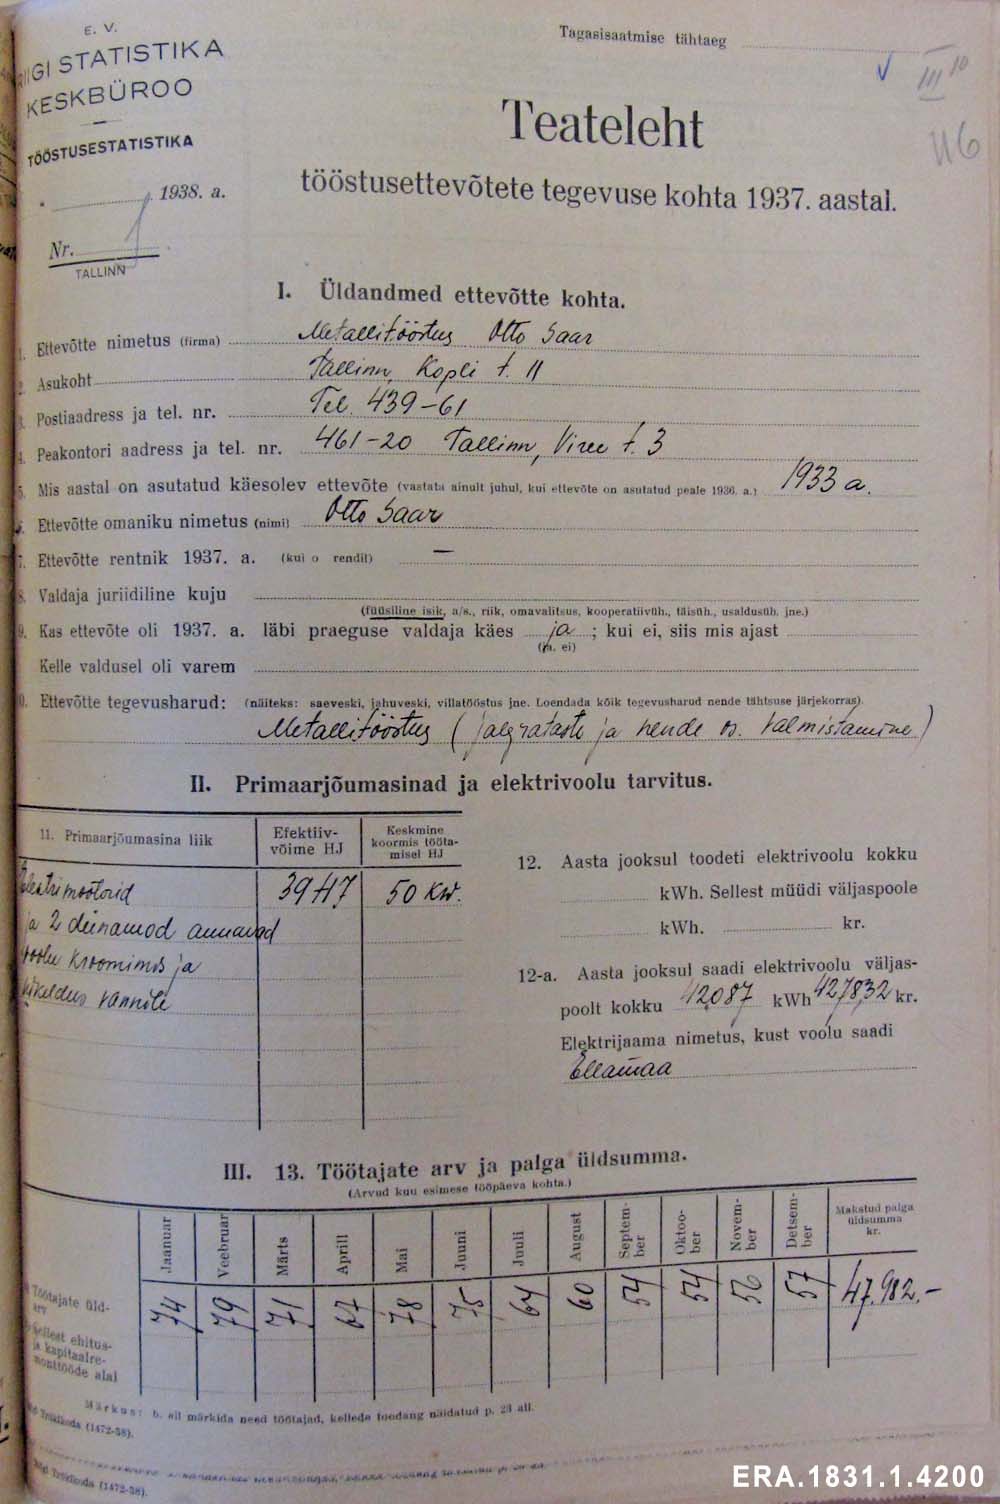 E. V.
RIIGI STATISTIKA
KESKBÜROO
TÖÖSTUSESTATISTIKA
1938. a.
Nr.
TALLINN
Tagasisaatmise tähtaeg
III 10
46
Teateleht
tööstusettevõtete tegevuse kohta 1937. aastal.
I. Üldandmed ettevõtte kohta.
1. Ettevõtte nimetus (firma) Metallitööstus Otto Saar
2. Asukoht Tallinn, Kopli t. 11
3. Postiaadress ja tel. nr. Tel. 439-61
4. Peakontori aadress ja tel. nr. 461-20 Tallinn, Viru t. 3
5. Mis aastal on asutatud käesolev ettevõte (vastata ainult juhul, kui ettevõte on asutatud peale 1936. a.) 1933 a.
6. Ettevõtte omaniku nimetus (nimi) Otto Saar
7. Ettevõtte rentnik 1937. a. (kui o rendil) —
8. Valdaja juriidiline kuju
(füüsiline isik, a/s., riik, omavalitsus, kooperatiivüh., täisüh., usaldusüh. jne.)
9. Kas ettevõte oli 1937. a. läbi praeguse valdaja käes ja ; kui ei, siis mis ajast
(ja. ei)
Kelle valdusel oli varem
0. Ettevõtte tegevusharud: (näiteks: saeveski, jahuveski, villatööstus jne. Loendada kõik tegevusharud nende tähtsuse järjekorras).
Metallitööstus (jalgrataste ja nende os. valmistamine)
II. Primaarjõumasinad ja elektrivoolu tarvitus.
11. Primaarjõumasina liik
Efektiiv-
võime HJ
Keskmine
koormis tööta-
misel HJ
Elektrimootorid 39 HJ 50 kw.
ja 2 dünamod annavad
voolu kroomimis ja
nikeldus vannile
12. Aasta jooksul toodeti elektrivoolu kokku
kWh. Sellest müüdi väljaspoole
kWh. kr.
12-a. Aasta jooksul saadi elektrivoolu väljas-
poolt kokku 42,087 kWh 4278,32 kr.
Elektrijaama nimetus, kust voolu saadi
Ellamaa
III. 13. Töötajate arv ja palga üldsumma.
(Arvud kuu esimese tööpäeva kohta.)
Jaanuar
Veebruar
Märts
Aprill
Mai
Juuni
Juuli
August
Septem-
ber
Oktoo-
ber
Novem-
ber
Detsem-
ber
Makstud palga
üldsumma
kr.
Töötajate üld-
arv
74 79 71 67 78 75 64 60 54 54 56 57 47.982.-
Sellest ehitus-
ja kapitaalre-
monttööde alal
Märkus: b. all märkida need töötajad, kellede toodang näidatud p. 23 all.
Riigi Trükikoda (1472-38).
Riigi Trükikoda (1472-38).
ERA.1831.1.4200